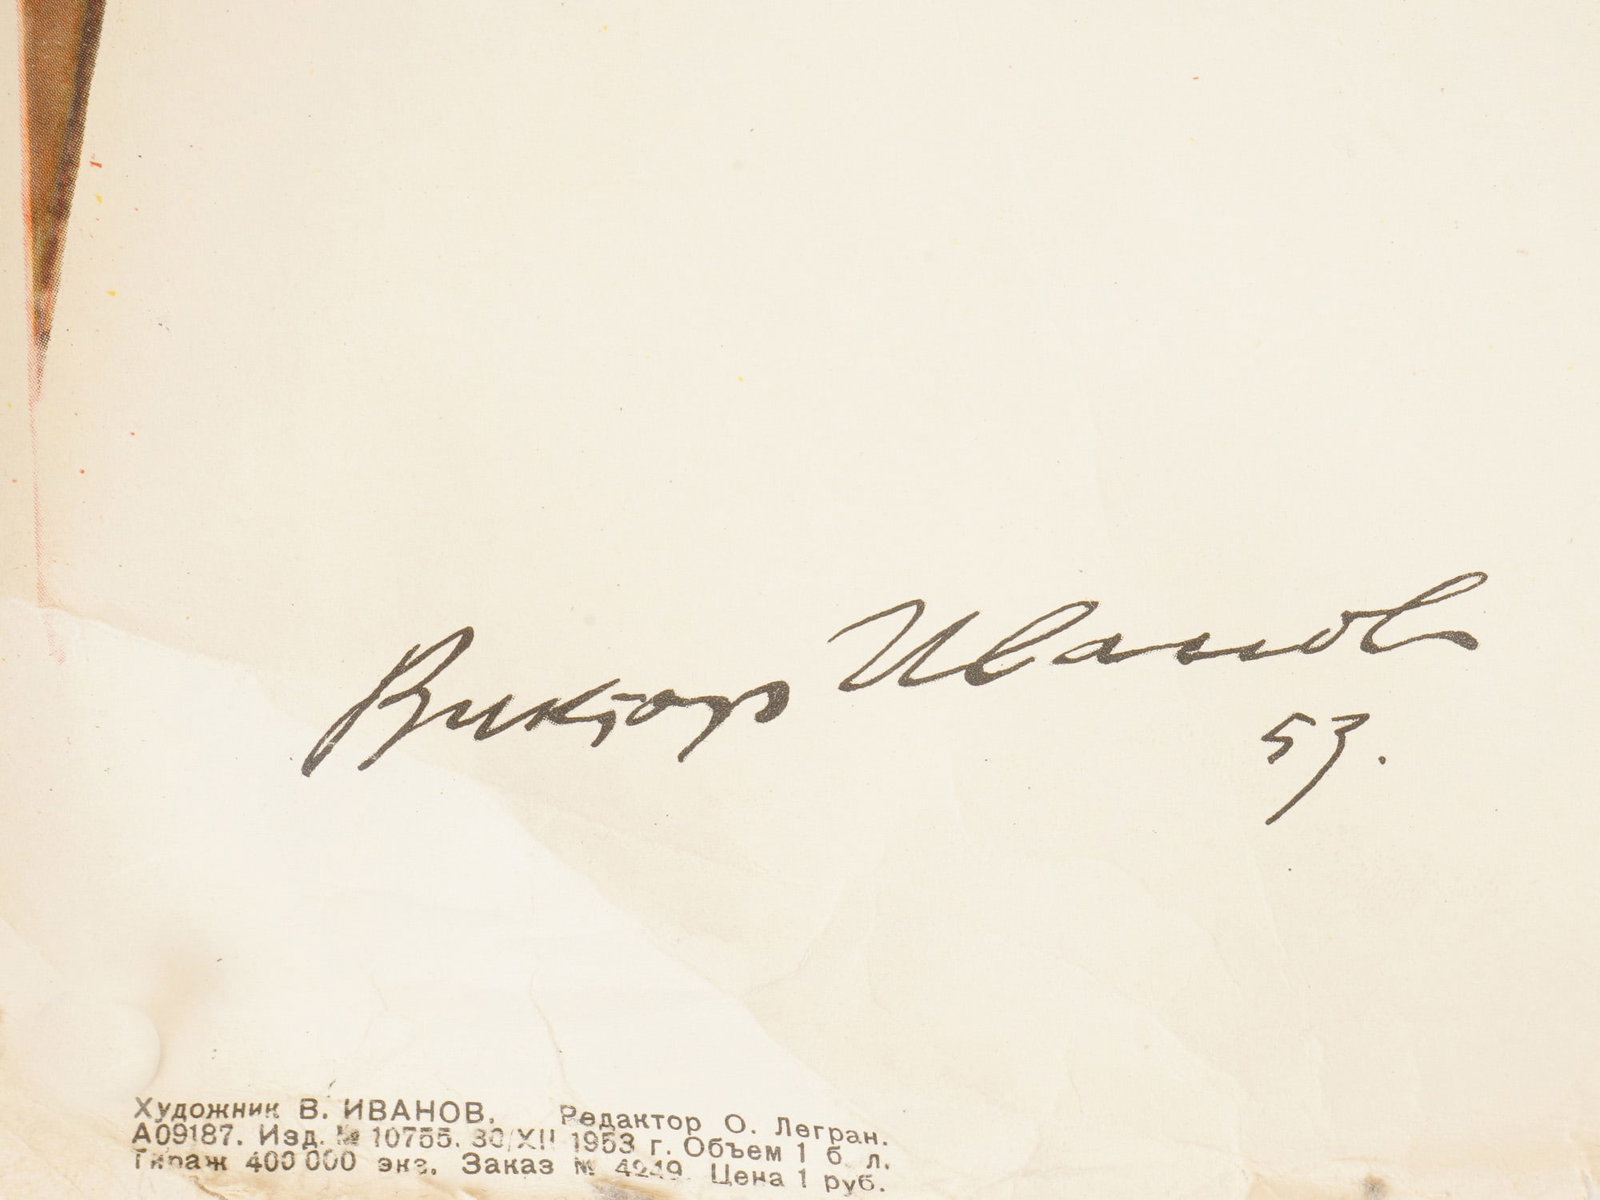 Виктор Иванов
53.
Художник В. ИВАНОВ. Редактор О. Легран.
А09187. Изд. № 10755. 30/XII 1953 г. Объем 1 б. л.
Тираж 400 000 экз. Заказ № 4249. Цена 1 руб.